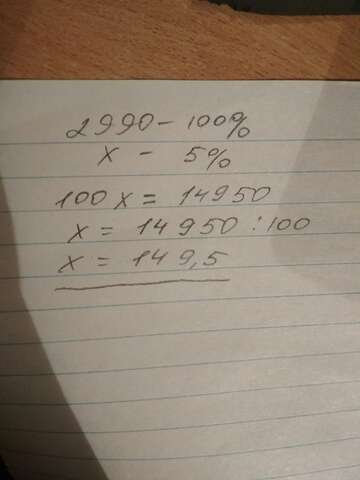 2990 - 100%
x - 5%
100 x = 14950
x = 14950 : 100
x = 149,5